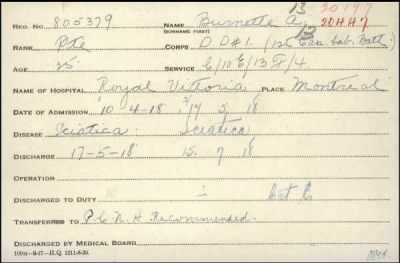 13 20197
REG. NO. 805379 NAME Burnette A. 20HH7
(SURNAME FIRST) 13
RANK Pte CORPS D.D#1. (12 Can Lab. Batt)
AGE 25 SERVICE C/10 E/13 F/4
NAME OF HOSPITAL Royal Victoria PLACE Montreal
DATE OF ADMISSION 10-4-18 17 5 18
DISEASE Sciatica Sciatica
DISCHARGE 17-5-18 15 7 18
OPERATION
DISCHARGED TO DUTY Cat E
TRANSFERRED TO P.C.N.H Recommended.
DISCHARGED BY MEDICAL BOARD
10004-9-17-H.Q. 1211-8-20.